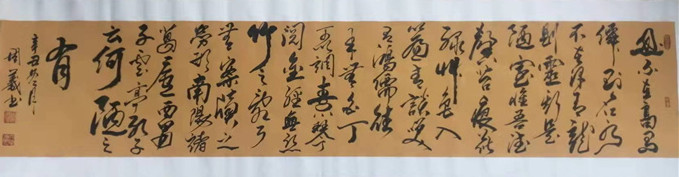 山不在高有
仙則名水
不在深有龍
則靈斯是
陋室惟吾德
馨苔痕上階
綠草色入
簾青談笑
有鴻儒往
來無白丁
可以調素琴
閱金經無絲
竹之亂耳
無案牘之
勞形南陽諸
葛廬西蜀
子雲亭孔子
云何陋之
有
辛丑
書